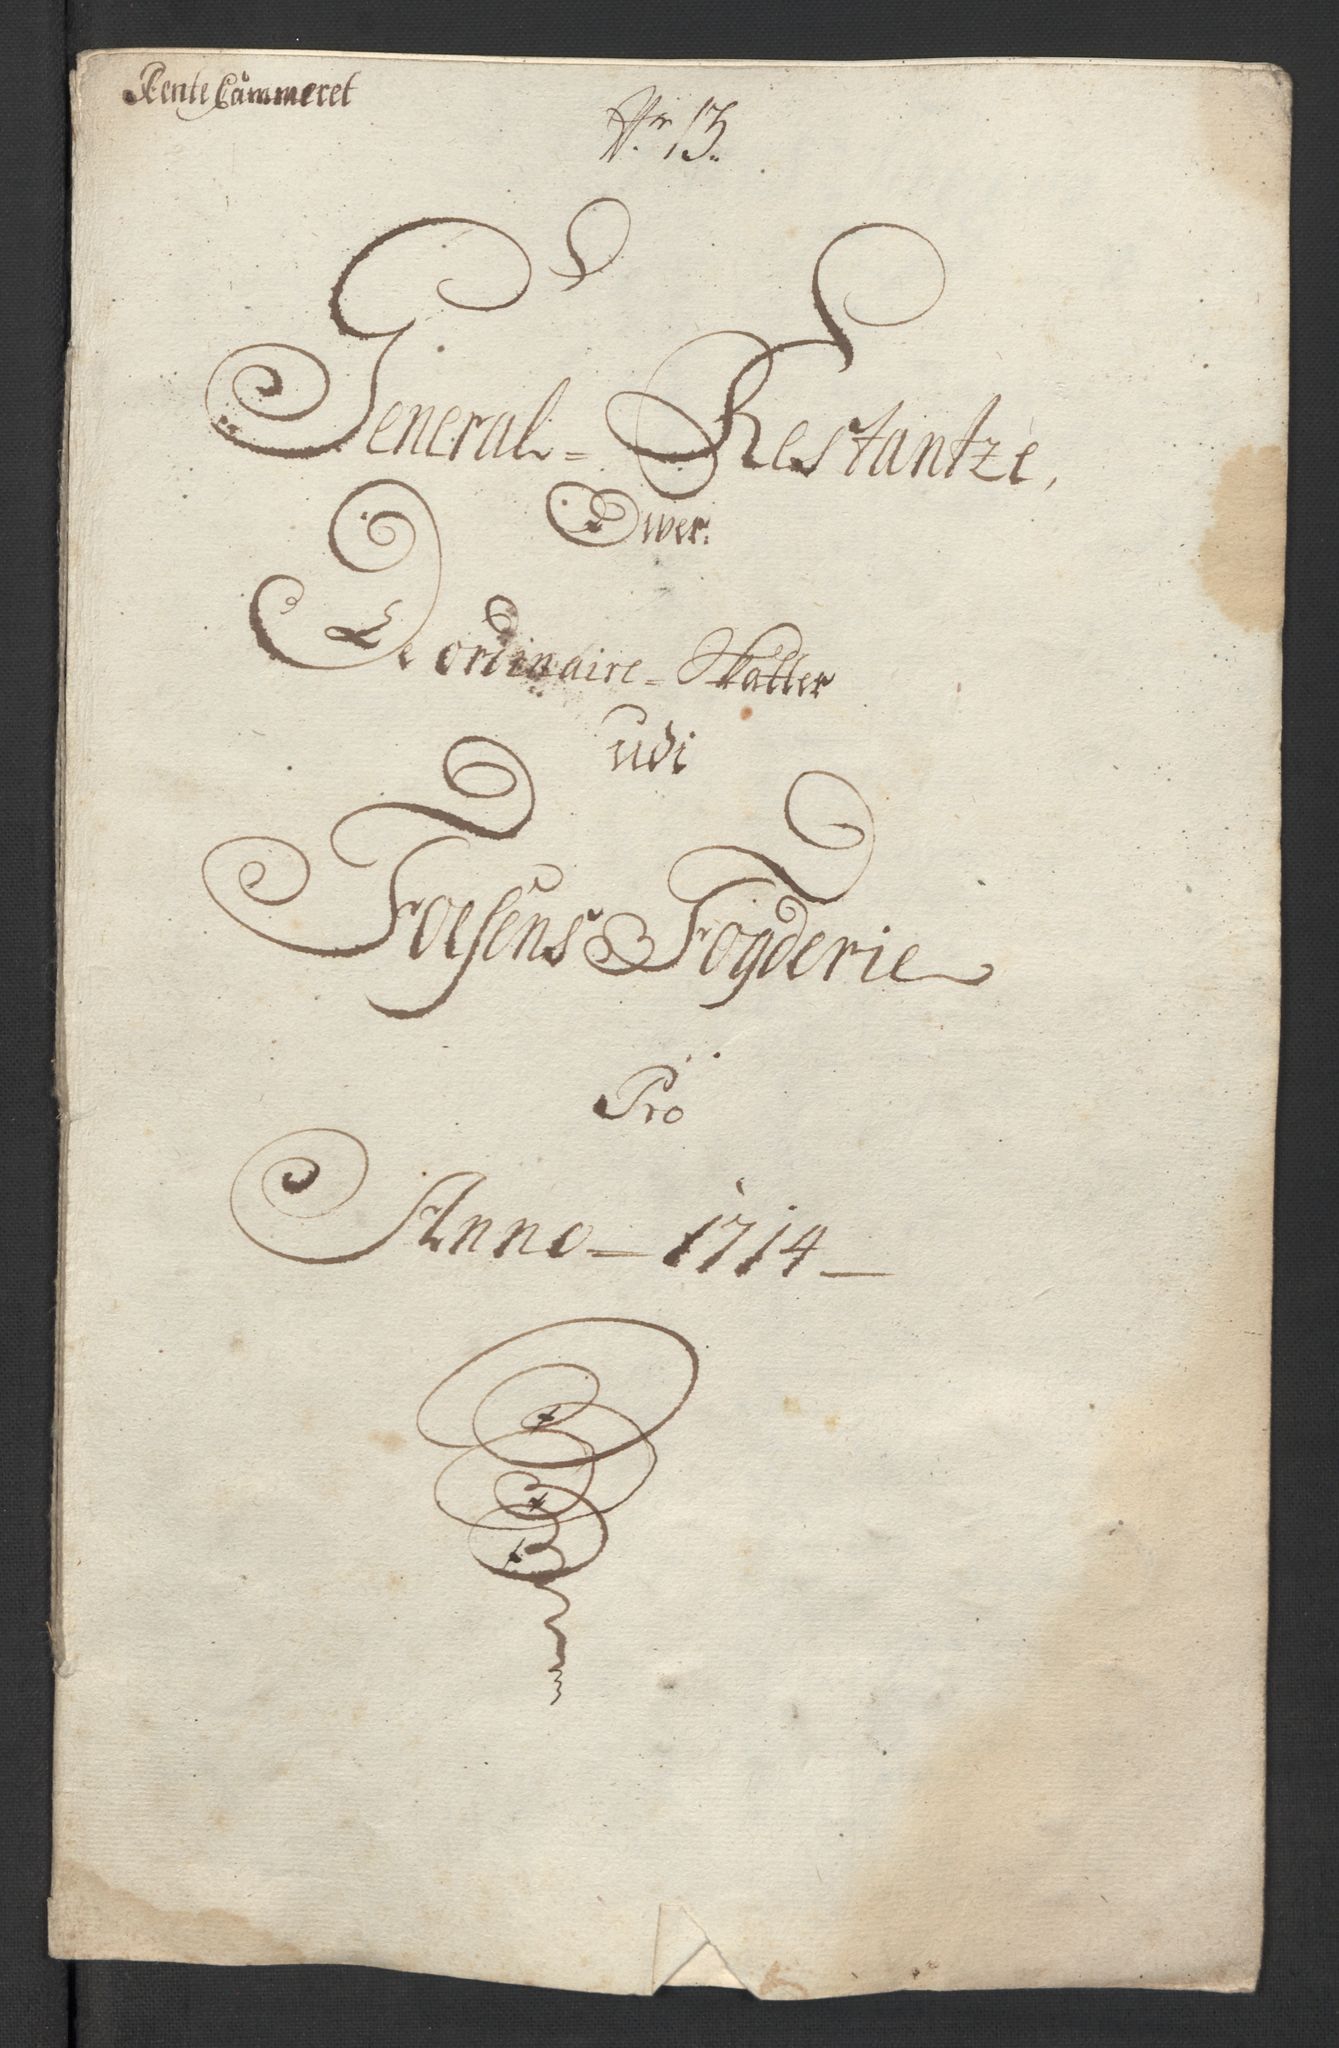 Rente Cammeret
Nr 13.
General- Restantze,
Ower.
De ordinaire- Skatter
udi
Foesens Fogderie
Pro
Anno - 1714 -